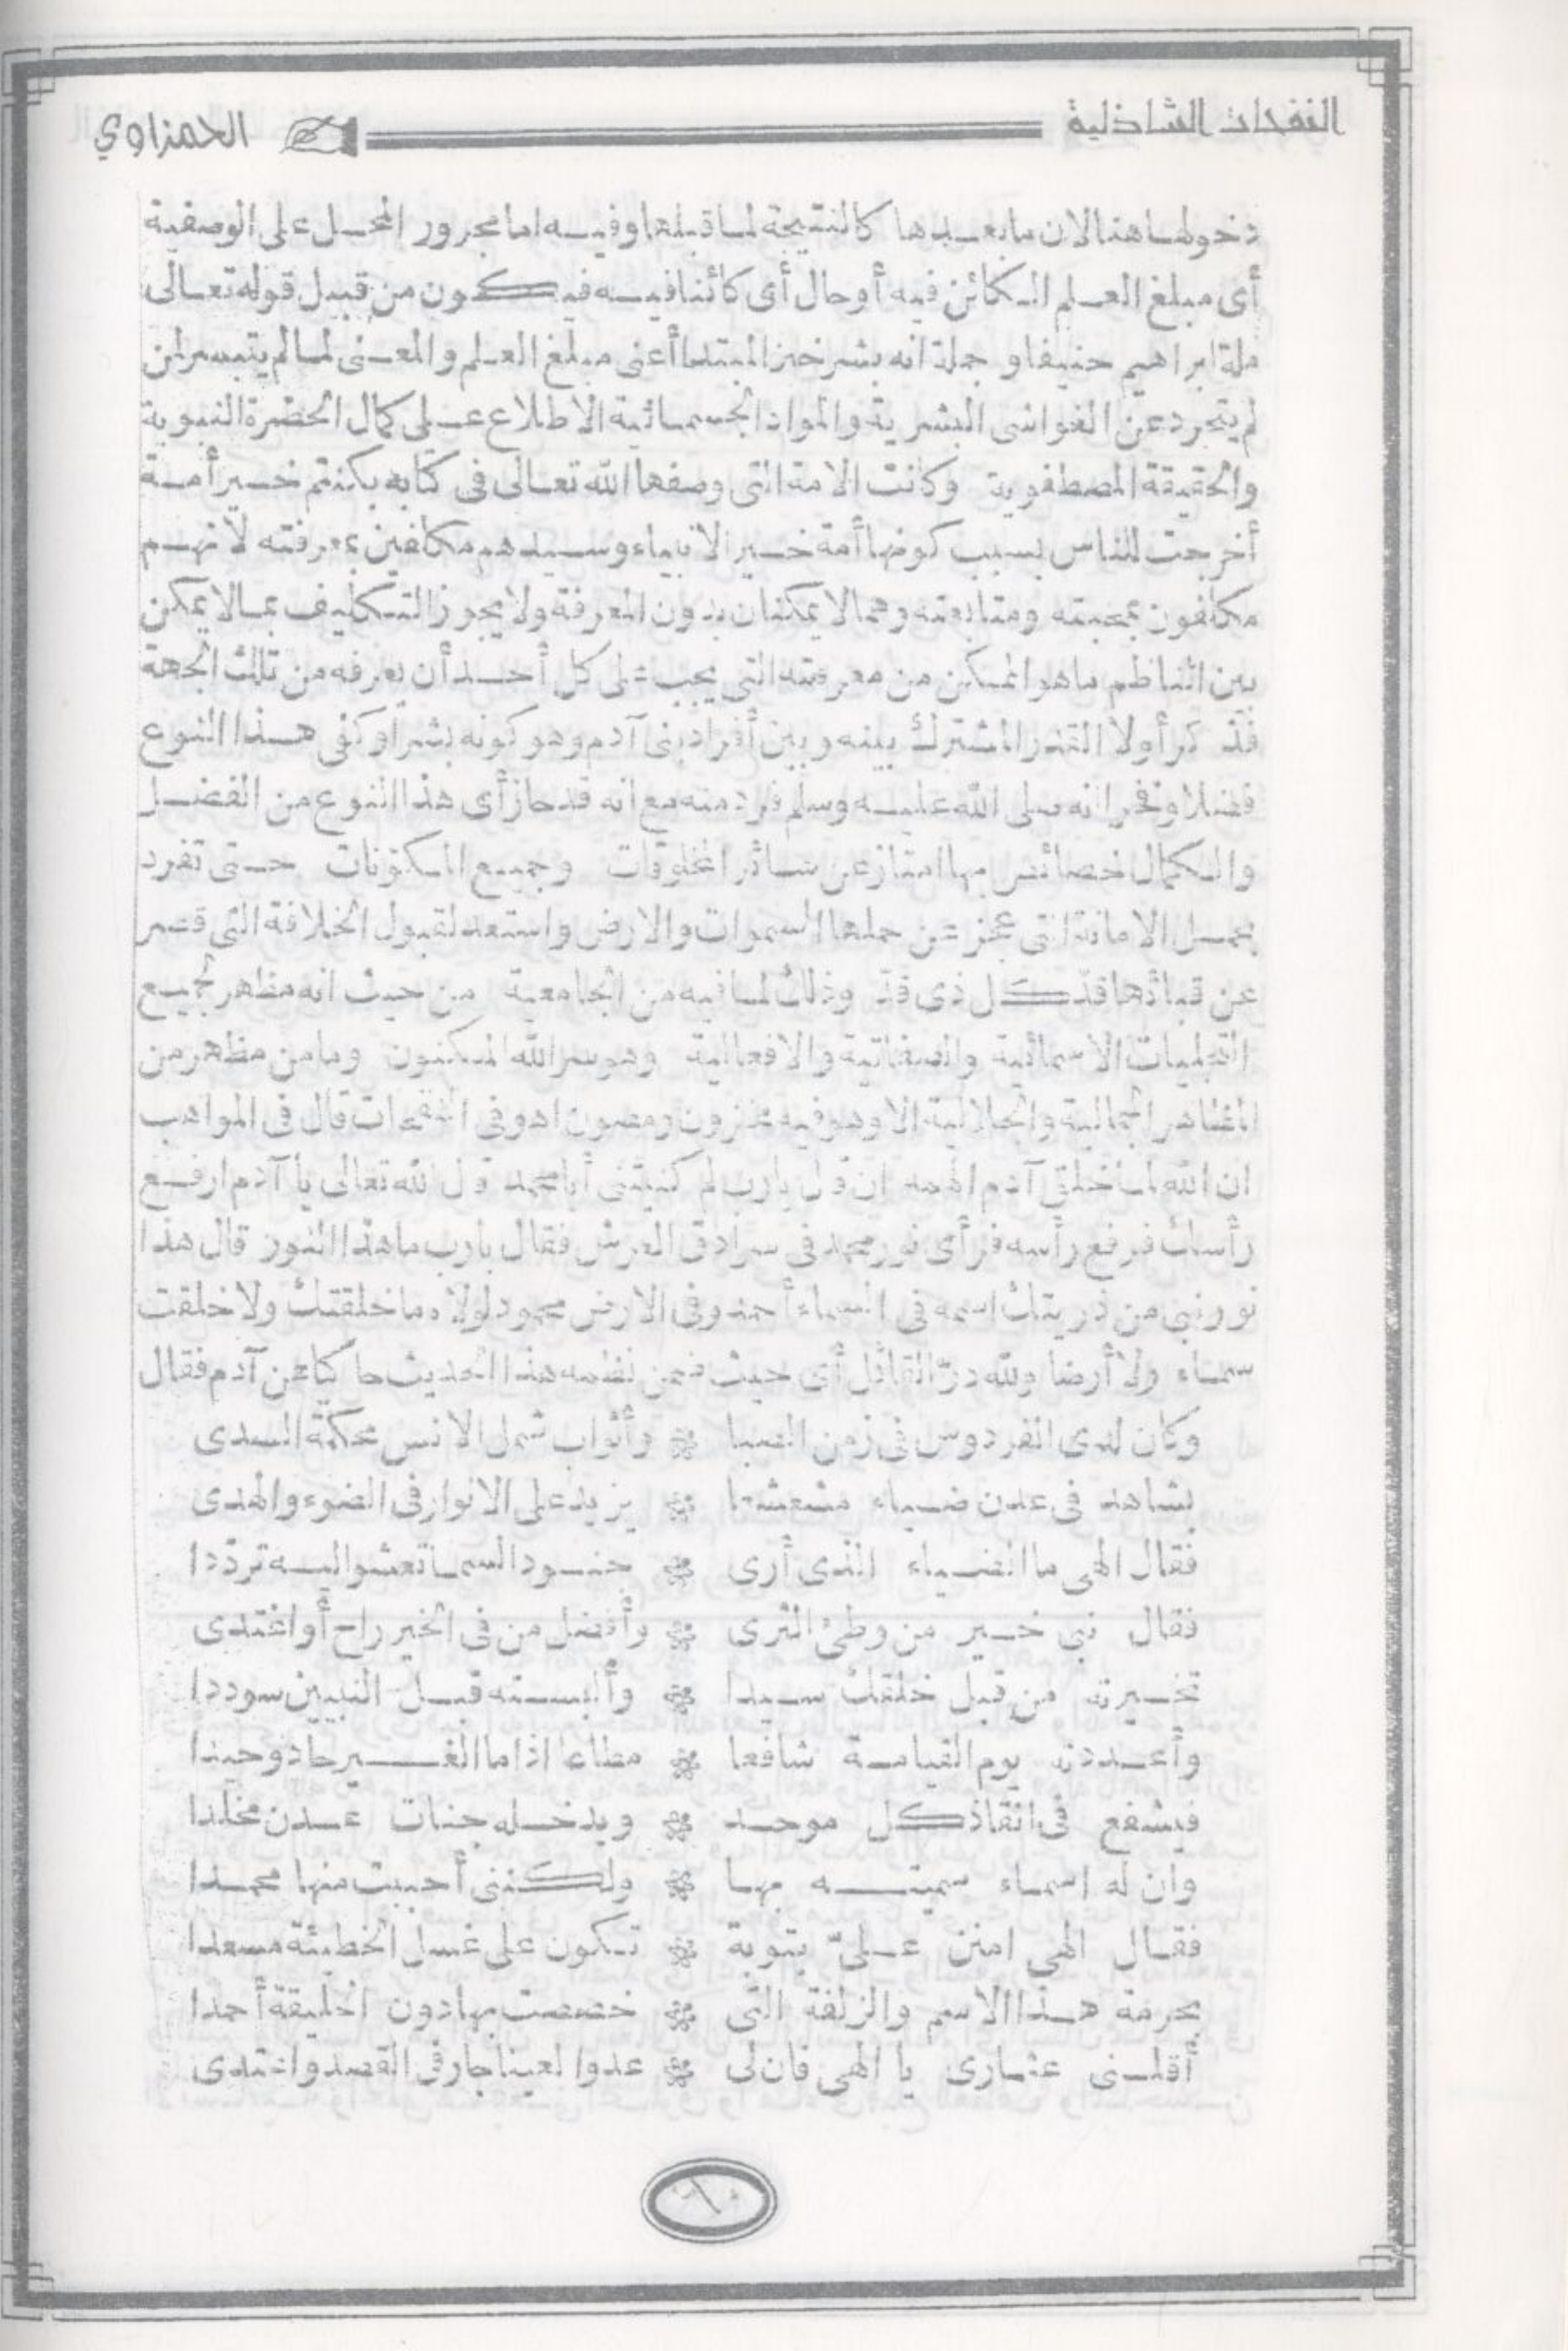 النفحات الشاذلية
الحمزاوي
دخولها هنا لان ما بعدها كالنتيجة لما قبلها وفيه اما مجرور المحل على الوصفية
أى مبلغ العلم الكائن فيه أو حال أى كائنا فيه فيكون من قبيل قوله تعالى
ملة ابراهيم حنيفا و جملة انه بشر خبر المبتدا أعنى مبلغ العلم والمعنى لما لم يتيسر لمن
لم يتجرد عن الغواشى البشرية والمواد الجسمانية الاطلاع على كمال الحضرة النبوية
والحقيقة المصطفوية وكانت الامة التى وصفها الله تعالى فى كتابه بكنتم خير أمة
أخرجت للناس بسبب كونها أمة خير الانبياء وسيدهم مكلفين بمعرفته لانهم
مكلفون بمحبته ومتابعته وهما لا يمكنان بدون المعرفة ولا يجوز التكليف بما لا يمكن
بين الناظم ما هو الممكن من معرفته التى يجب على كل أحد أن يعرفه من تلك الجهة
فذكر أولا القدر المشترك بينه وبين أفراد بنى آدم وهو كونه بشرا وكفى هذا النوع
فضلا وفخرا انه صلى الله عليه وسلم فرد منه مع انه قد حاز أى هذا النوع من الفضل
والكمال خصائص بها امتاز عن سائر المخلوقات وجميع المكونات حتى تفرد
بحمل الامانة التى عجز عن حملها السموات والارض واستعد لقبول الخلافة التى قصر
عن قيادها قد كل ذى قد وذلك لما فيه من الجامعية من حيث انه مظاهر لجميع
التجليات الاسمائية والصفاتية والافعالية وهو سر الله المكنون وما من مظهر من
المظاهر الجمالية والجلالية الا وهو فيه مخزون ومصون اهوفى النفحات قال فى المواهب
ان الله لما خلق آدم الهمه ان قال يارب لم كنيتنى أبا محمد قال الله تعالى يا آدم ارفع
رأسك فرفع رأسه فرأى نور محمد فى سرادق العرش فقال يارب ما هذا النور قال هذا
نور نبى من ذريتك اسمه فى السماء أحمد وفى الارض محمود لولاه ما خلقتك ولا خلقت
سماء ولا أرضا ولله در القائل أى حيث ضمن نظمه هذا الحديث حاكيا عن آدم فقال
وكان لدى الفردوس فى زمن الصبا ❁ وأثواب شمل الانس محكمة السدى
يشاهد فى عدن ضياء مشعشعا ❁ يزيد على الانوار فى الضوء والهدى
فقال الهى ما الضياء الذى أرى ❁ جنود السما تعشوا اليه ترددا
فقال نبى خير من وطئ الثرى ❁ وأفضل من فى الخير راح أو اغتدى
تخيرته من قبل خلقك سيدا ❁ وألبسته قبل النبيين سوددا
وأعددته يوم القيامة شافعا ❁ مطاعا اذا ما الغير حاد وحيدا
فيشفع فى انقاذ كل موحد ❁ ويدخله جنات عدن مخلدا
وان له اسماء سميته بها ❁ ولكننى أحببت منها محمدا
فقال الهى امنن على بتوبة ❁ تكون على غسل الخطيئة مسعدا
بحرمة هذا الاسم والزلفة التى ❁ خصصت بها دون الخليقة أحمدا
أقلنى عثارى يا الهى فان لى ❁ عدوا لعينا جار فى القصد واعتدى